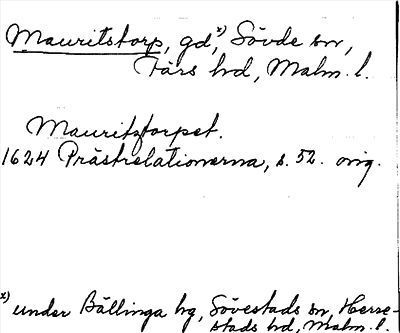 Mauritstorp, gd,ˣ⁾ Sövde sn,
Färs hd, Malm. l.
Mauritztorpet.
1624 Prästrelationerna, s. 52. orig.
x) under Bällinga hg, Sövestads sn, Herre-
stads hd, Malm. l.